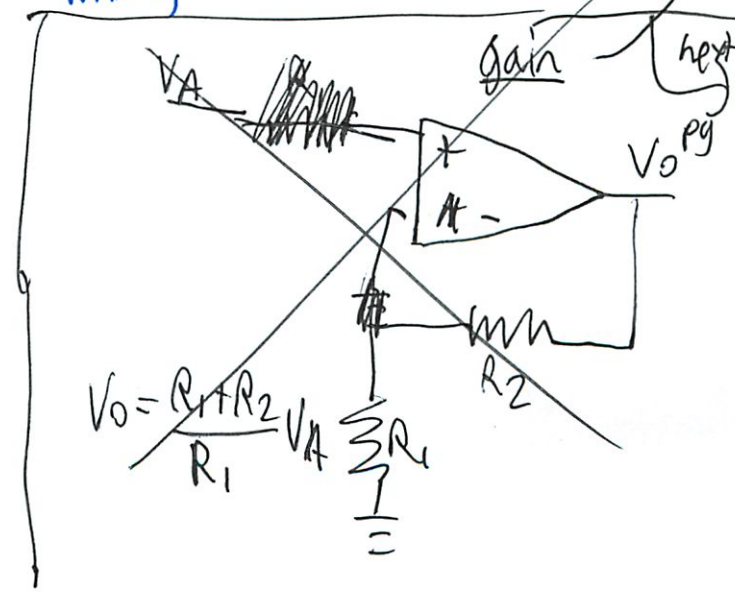 gain
next
pg
VA
+
-
VO
R2
VO = R1+R2 / R1 VA
R1